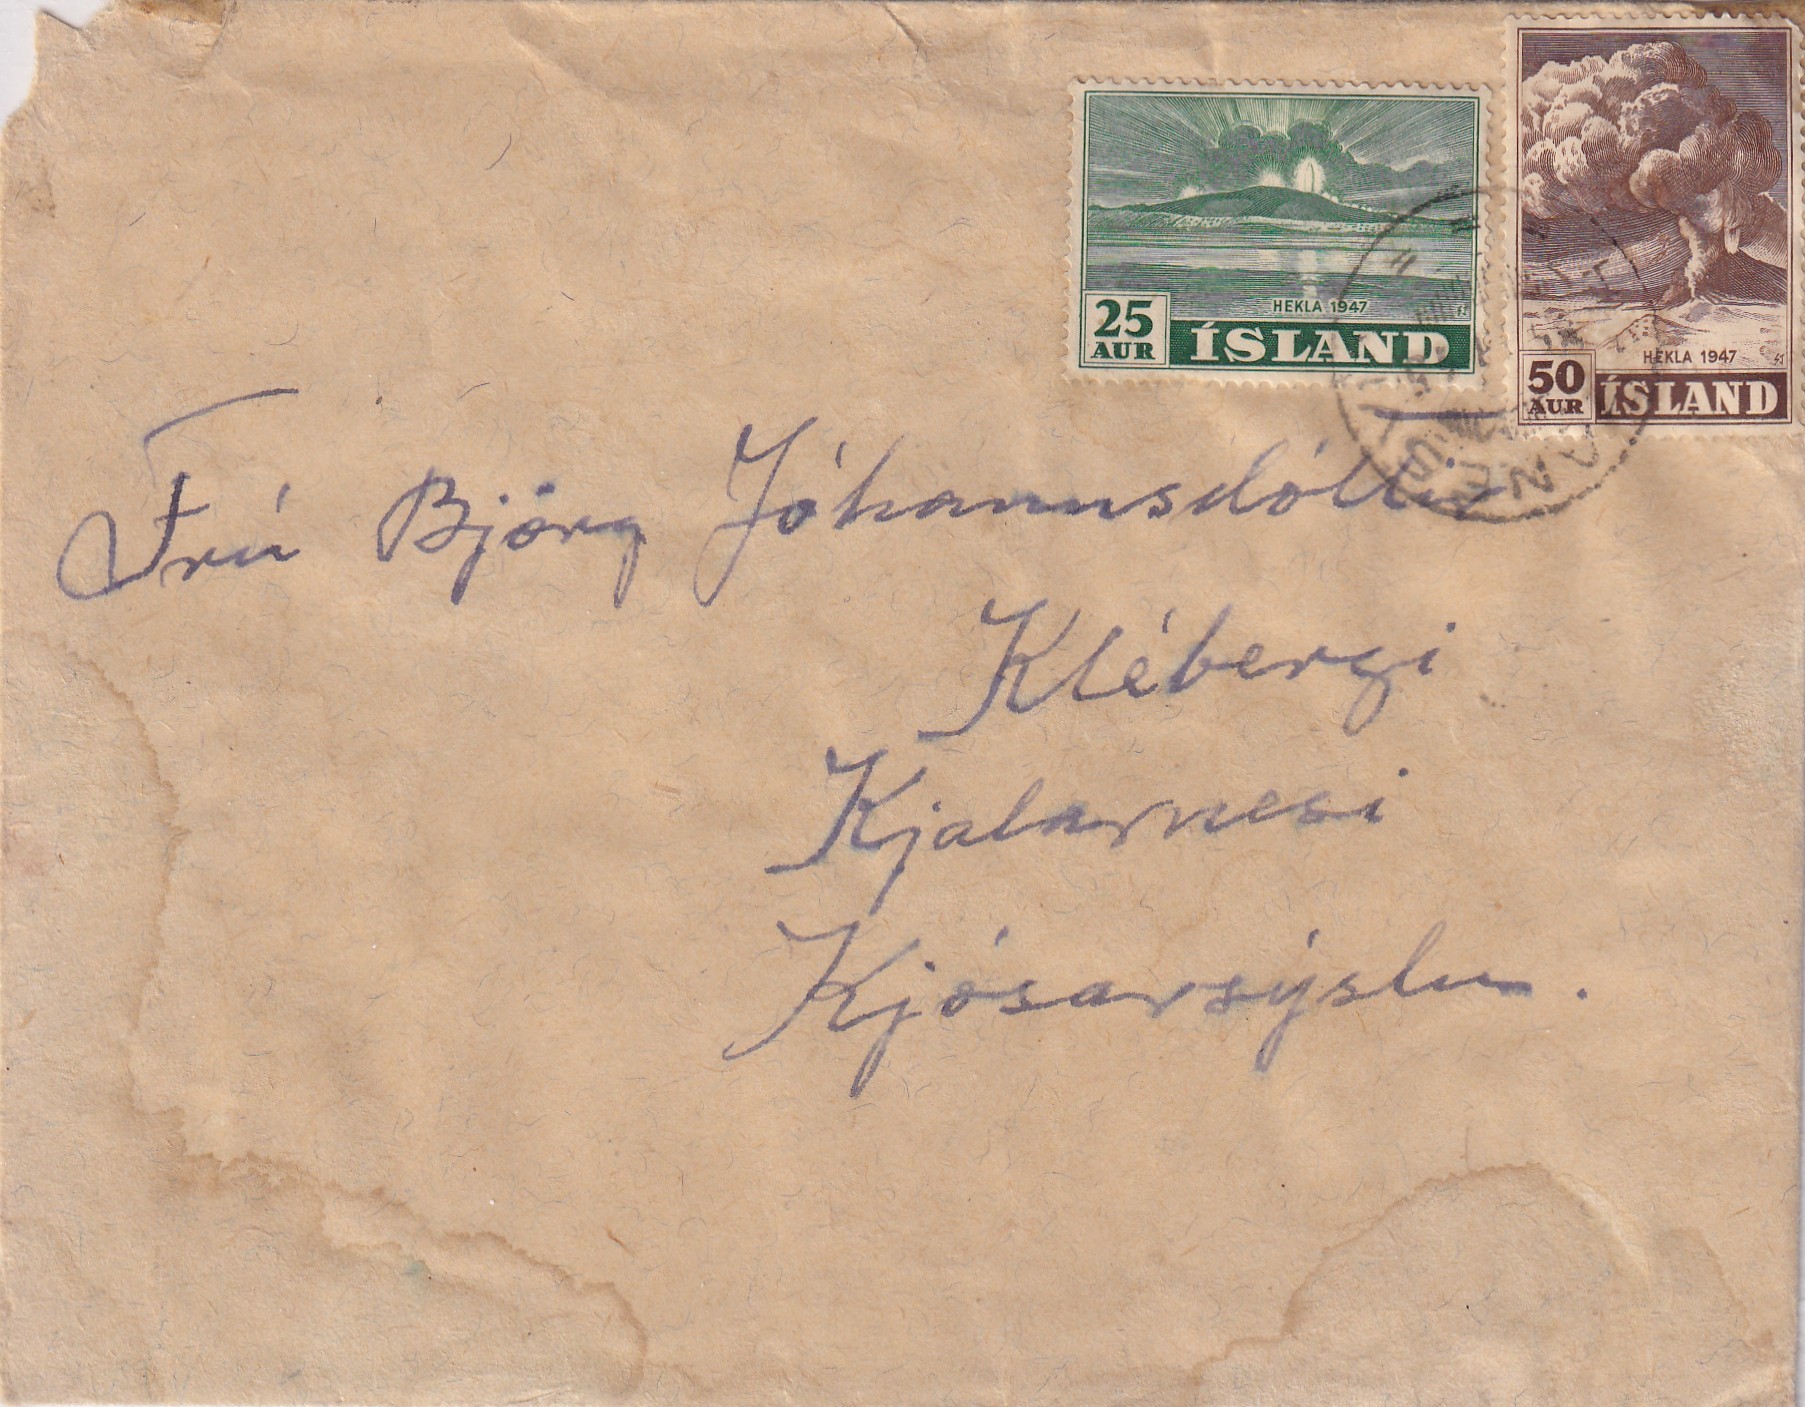 HEKLA 1947
25
AUR
ÍSLAND
HEKLA 1947
50
AUR
ÍSLAND
Frú Björg Jóhannsdóttir
Klébergi
Kjalarnesi
Kjósarsýslu.